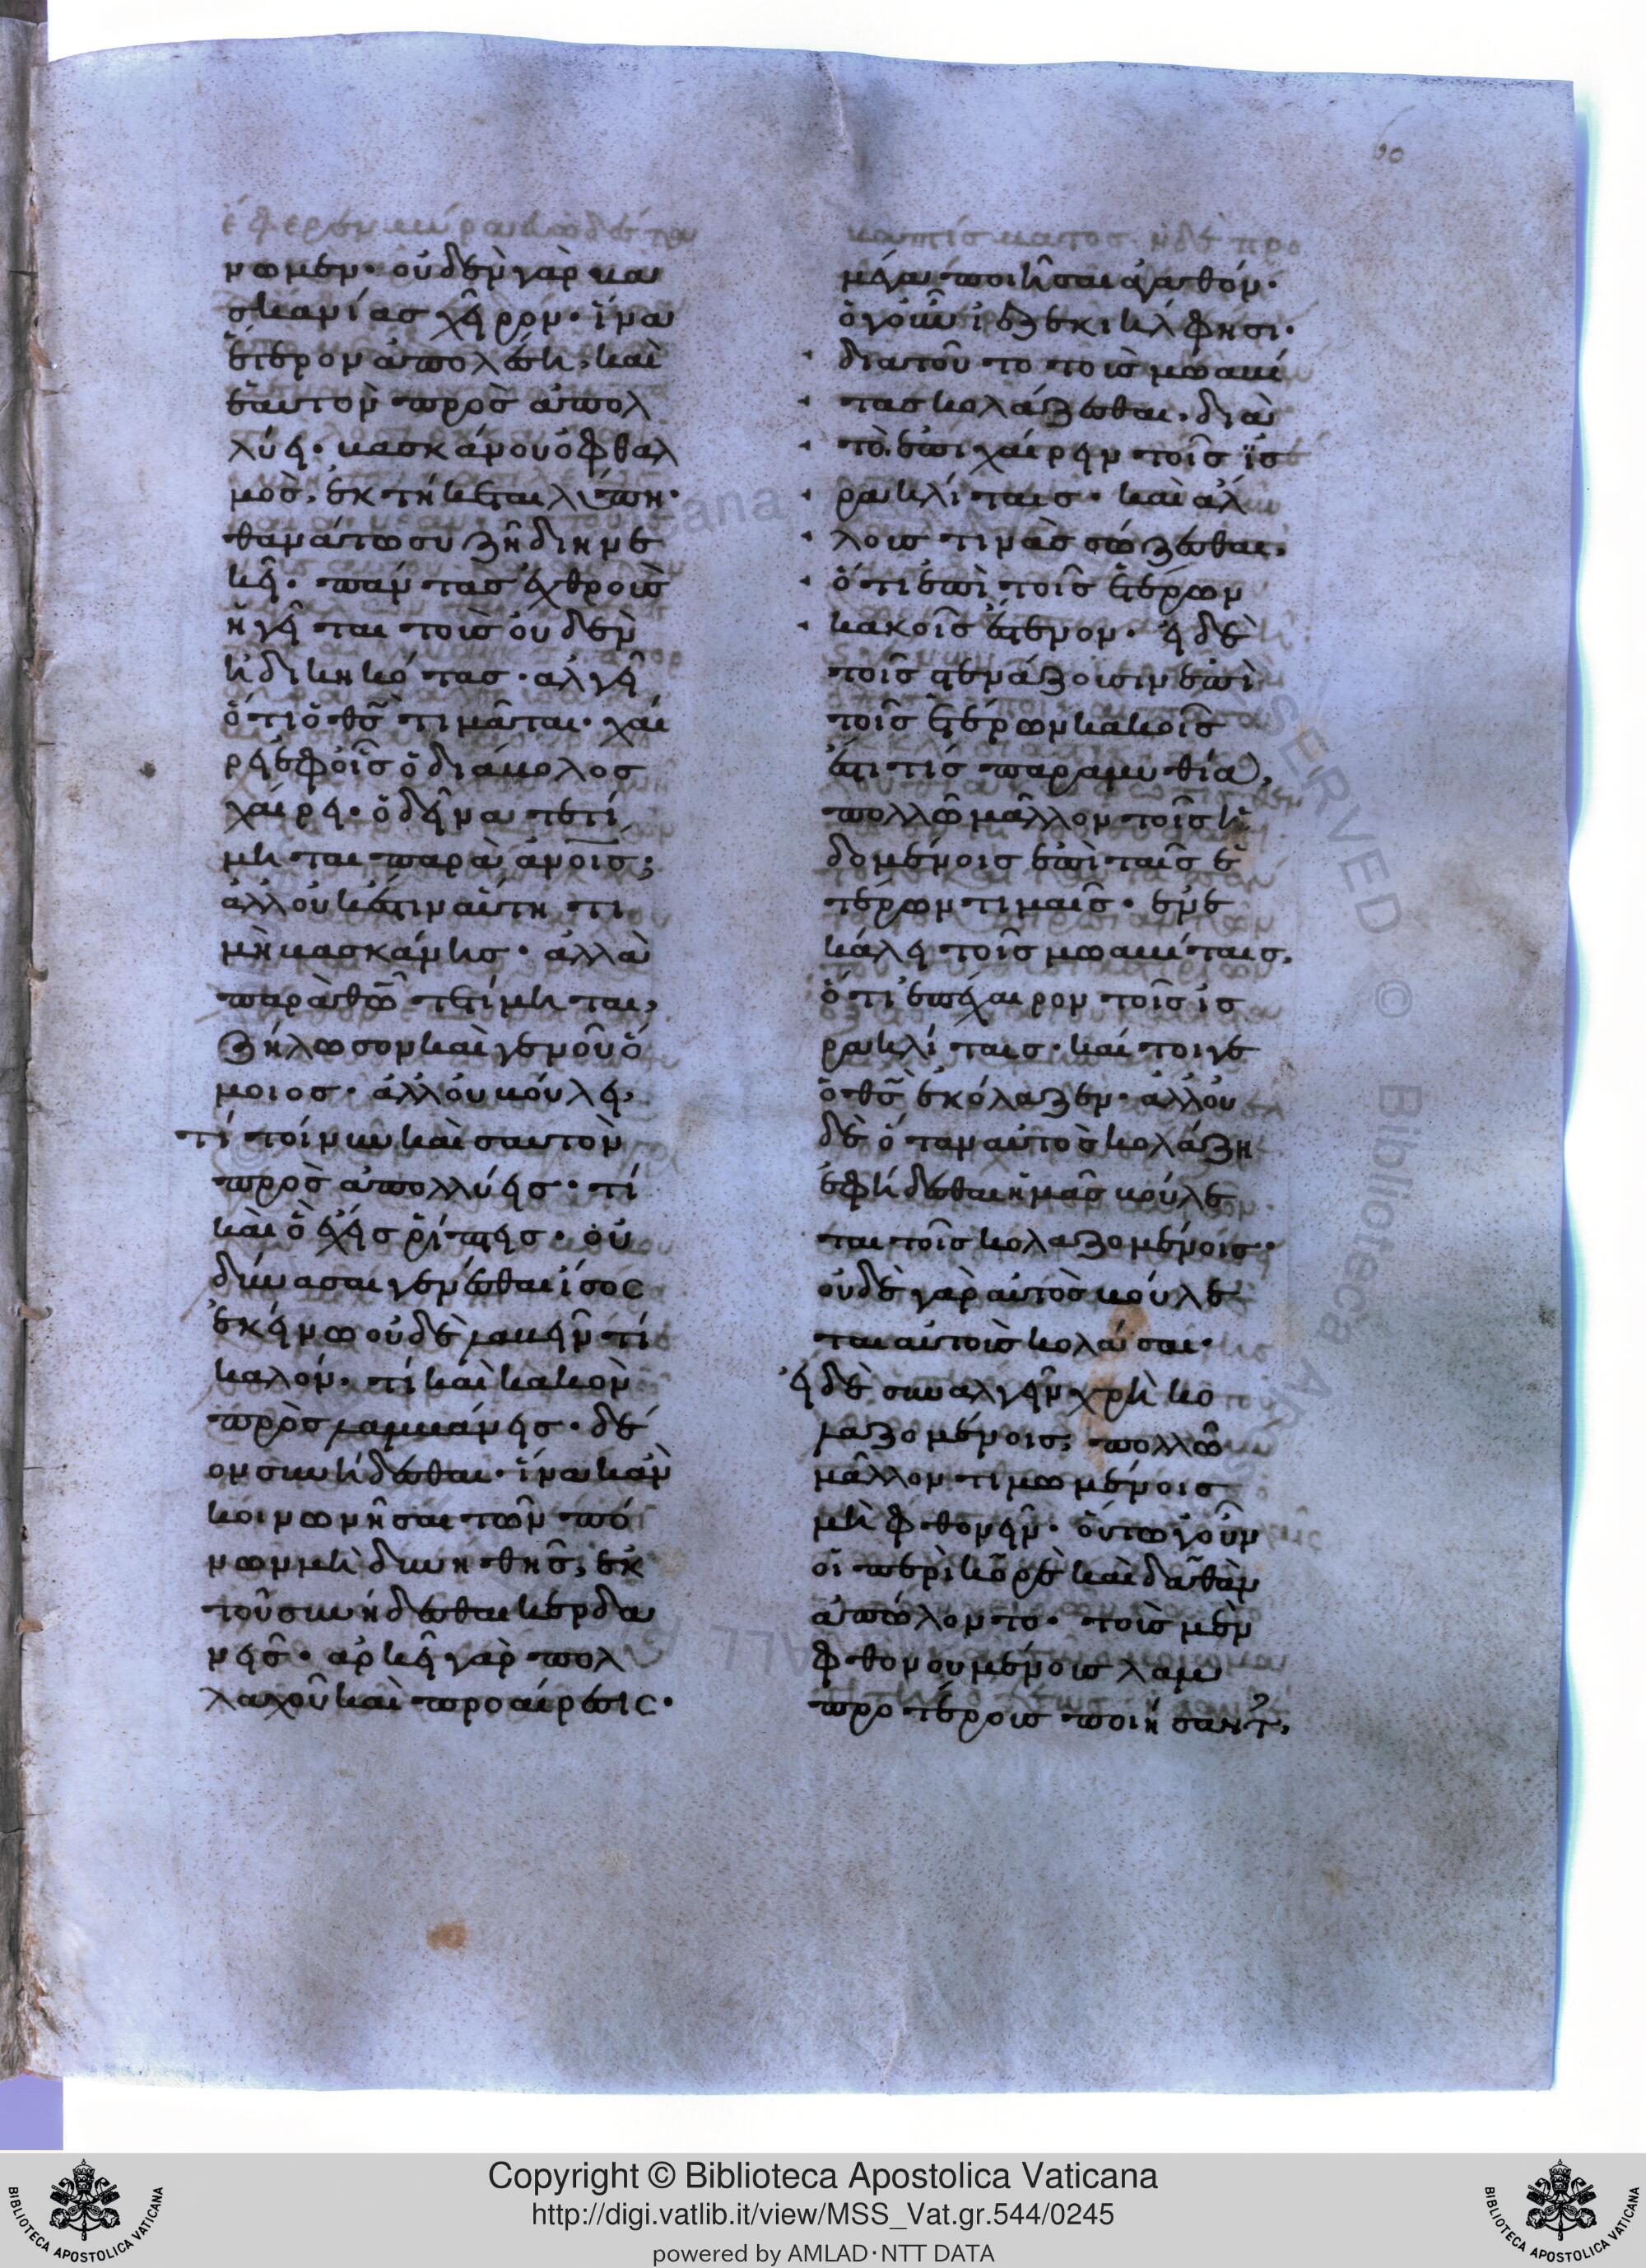 νωμεν· οὐδὲν γὰρ βα
σκανίας χεῖρον· ἵνα
ἕτερον ἀπολέσῃ, καὶ
ἑαυτὸν προσαπολ
λύει· βασκάνου ὀφθαλ
μὸς, ἐκτήκεται λύπῃ·
θανάτω συζῆ διηνε
κεῖ· πάντας ἐχθροὺς
ἡγεῖται τοὺς οὐδὲν
ἠδικηκότας· ἀλγεῖ
ὅτι ὁ θς τιμᾶται· χαί
ρει ἐφ οἷς ὁ διάβολος
χαίρει· ὁ δεῖνα τετί
μηται παρὰ ἀνοις;
ἀλλ οὐκ ἔστιν αὕτη τι
μὴ βασκάνης· ἀλλὰ
παρὰ θῶ τετίμηται,
ζήλωσον καὶ γενοῦ ὅ
μοιος· ἀλλ οὐ βούλει,
τί τοίνυν καὶ σαυτὸν
προσαπολλύεις· τί
καὶ ὃ ἔχεις ῥίπτεις· οὐ
δύνασαι γενέσθαι ἴσος
ἐκείνω οὐδὲ λαβεῖν τί
καλόν· τί καὶ κακὸν
προσλαμβάνεις· δέ
ον συνήδεσθαι· ἵνα κἂν
κοινωνῆσαι τῶν πό
νων μὴ δυνηθῆς, ἐκ
τοῦ συνήδεσθαι κερδά
νεῖς· ἀρκεῖ γὰρ πολ
λαχοῦ καὶ προαίρεσις·
μέγα ποιῆσαι ἀγαθόν·
ὁ γοῦν ἰεζεκιήλ φησι·
διατοῦτο τοὺς μωαβί
τας κολάζεσθαι, διὰ
τὸ ἐπιχαίρειν τοῖς ἰσ
ραηλίταις· καὶ ἄλ
λους τινὰς σώζεσθαι,
ὅτι ἐπὶ τοῖς ἑτέρων
κακοῖς ἔστενον· εἰ δὲ
τοῖς στενάζουσιν ἐπὶ
τοῖς ἑτέρων κακοῖς
ἔστι τίς παραμυθία,
πολλῶ μᾶλλον τοῖς ἡ
δομένοις ἐπὶ ταῖς ἑ
τέρων τιμαῖς· ἐνε
κάλει τοῖς μωαβίταις,
ὅτι ἐπέχαιρον τοῖς ἰσ
ραηλίταις· καί τοιγε
ὁ θς ἐκόλαζεν· ἀλλ οὐ
δὲ ὅταν αὐτὸς κολάζη
ἐφήδεσθαι ἡμᾶς βούλε
ται τοῖς κολαζομένοις·
οὐδὲ γὰρ αὐτὸς βούλε
ται αὐτοὺς κολάσαι·
εἰ δὲ συναλγεῖν χρὴ κο
λαζομένοις, πολλῶ
μᾶλλον τιμωμένοις
μὴ φθονεῖν· οὕτω γοῦν
οἱ περὶ κορὲ καὶ δαθὰν
ἀπώλοντο· τοὺς μὲν
φθονουμένους λαμ
προτέρους ποιήσαντ,
Copyright © Biblioteca Apostolica Vaticana
http://digi.vatlib.it/view/MSS_Vat.gr.544/0245
powered by AMLAD·NTT DATA
BIBLIOTECA APOSTOLICA VATICANA
BIBLIOTECA APOSTOLICA VATICANA